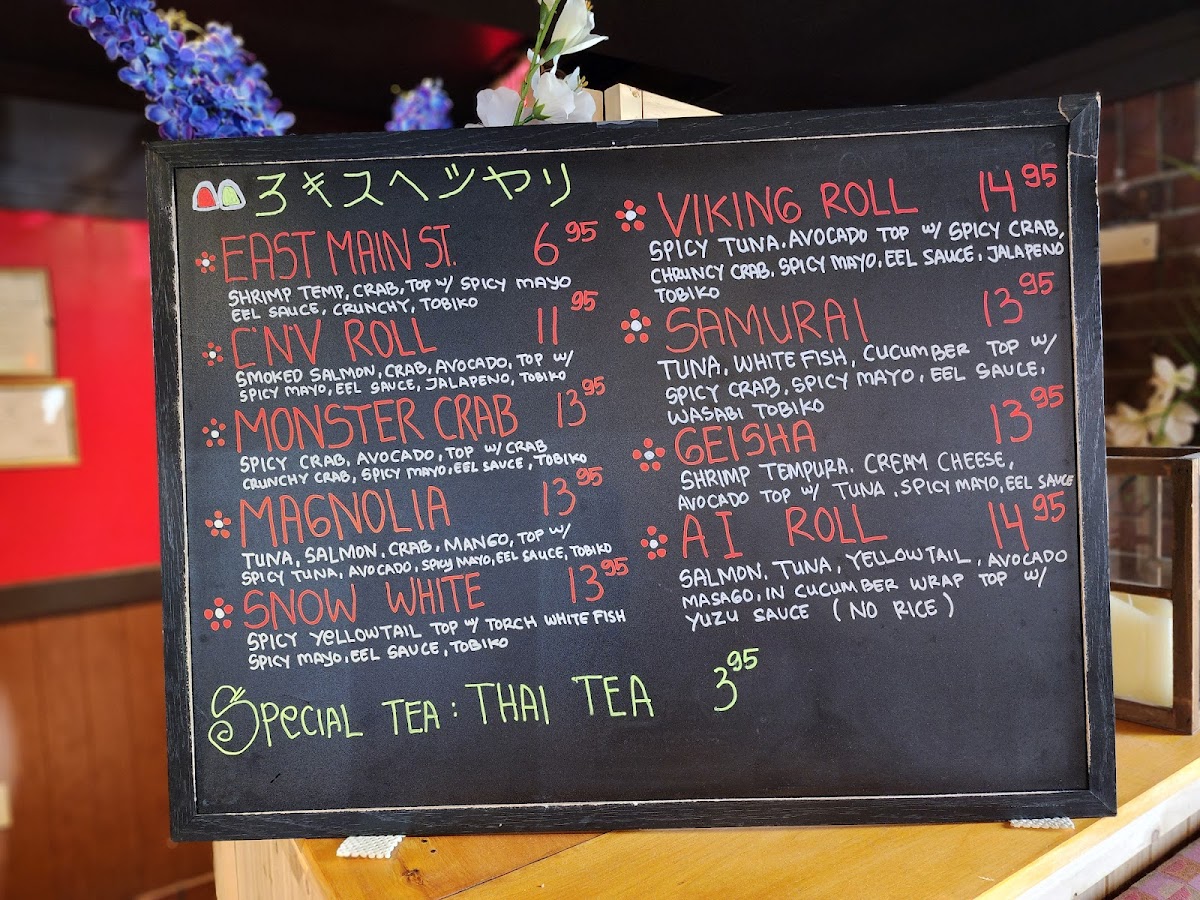 ろキスヘツヤリ
EAST MAIN ST. 6 95
SHRIMP TEMP, CRAB, TOP W/ SPICY MAYO
EEL SAUCE, CRUNCHY, TOBIKO
C'N'V ROLL 11 95
SMOKED SALMON, CRAB, AVOCADO, TOP W/
SPICY MAYO, EEL SAUCE, JALAPENO, TOBIKO
MONSTER CRAB 13 95
SPICY CRAB, AVOCADO, TOP W/ CRAB
CRUNCHY CRAB, SPICY MAYO, EEL SAUCE, TOBIKO
MAGNOLIA 13 95
TUNA, SALMON, CRAB, MANGO, TOP W/
SPICY TUNA, AVOCADO, SPICY MAYO, EEL SAUCE, TOBIKO
SNOW WHITE 13 95
SPICY YELLOWTAIL TOP W/ TORCH WHITE FISH
SPICY MAYO, EEL SAUCE, TOBIKO
VIKING ROLL 14 95
SPICY TUNA, AVOCADO TOP W/ SPICY CRAB,
CHRUNCY CRAB, SPICY MAYO, EEL SAUCE, JALAPENO
TOBIKO
SAMURAI 13 95
TUNA, WHITE FISH, CUCUMBER TOP W/
SPICY CRAB, SPICY MAYO, EEL SAUCE,
WASABI TOBIKO
GEISHA 13 95
SHRIMP TEMPURA. CREAM CHEESE,
AVOCADO TOP W/ TUNA, SPICY MAYO, EEL SAUCE
AI ROLL 14 95
SALMON, TUNA, YELLOWTAIL, AVOCADO
MASAGO, IN CUCUMBER WRAP TOP W/
YUZU SAUCE (NO RICE)
SPECIAL TEA: THAI TEA 3 95